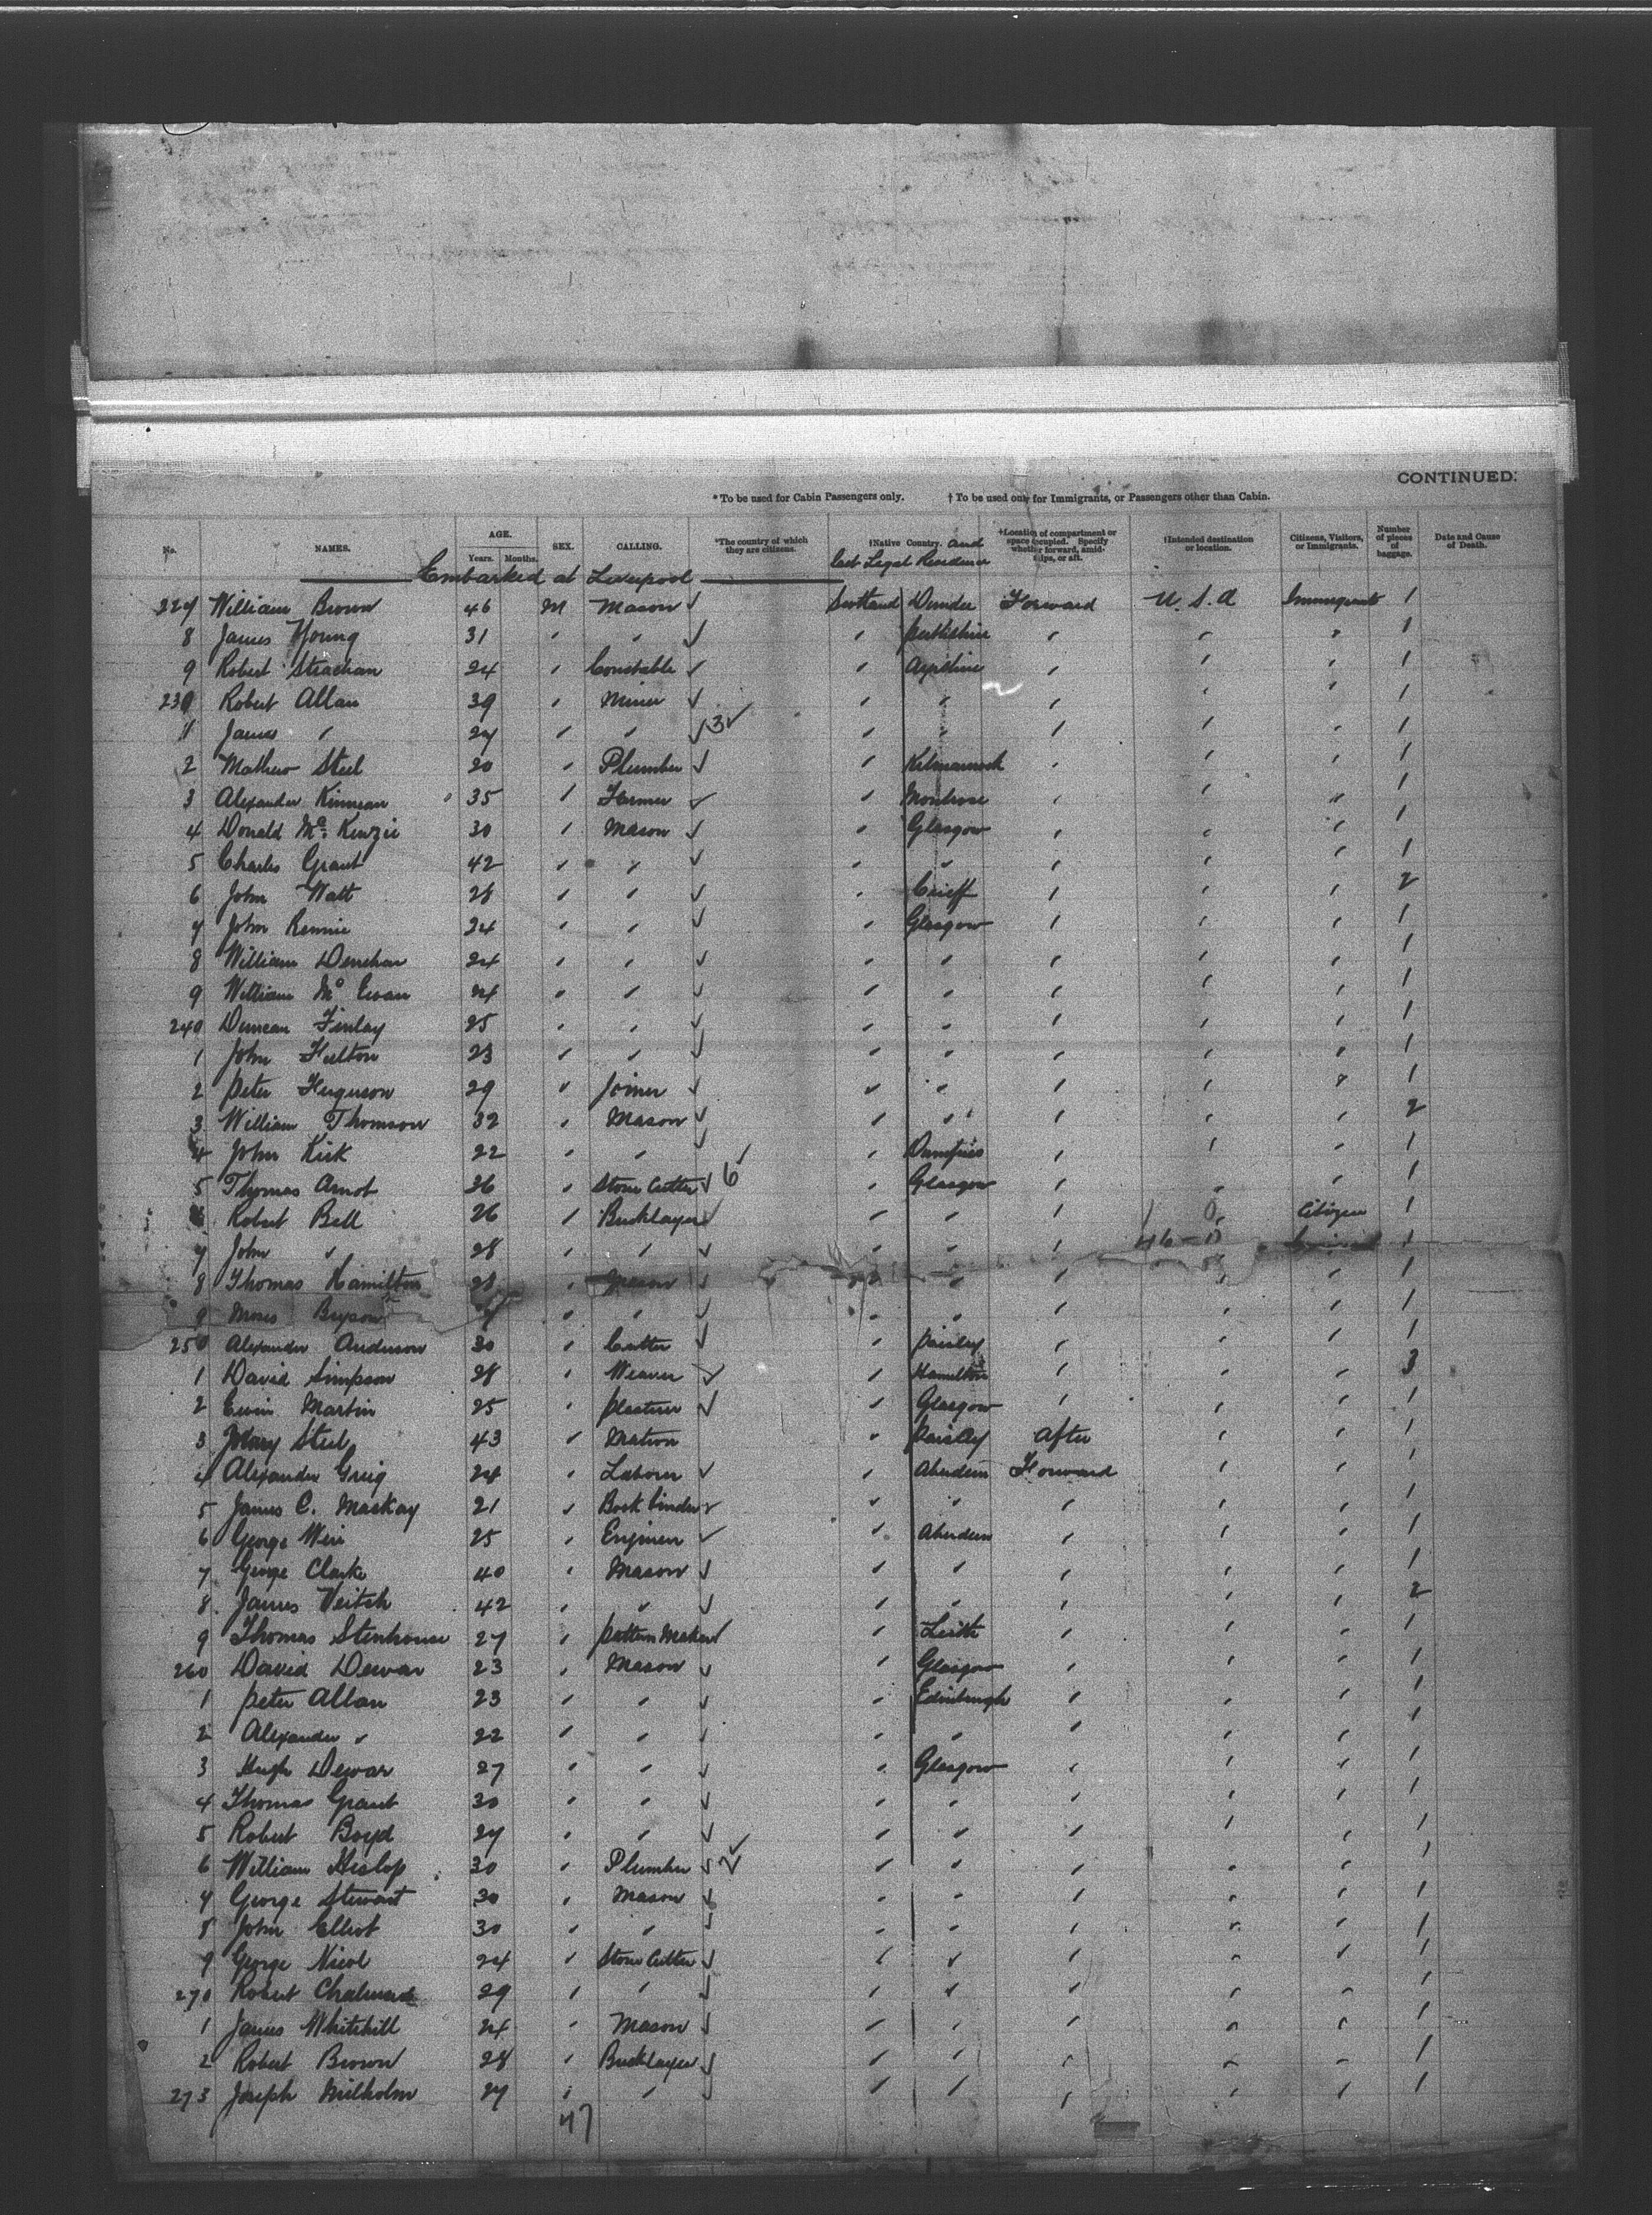 CONTINUED.
* To be used for Cabin Passengers only. † To be used only for Immigrants, or Passengers other than Cabin.
No. NAMES. AGE. Years. Months. SEX. CALLING. *The country of which they are citizens. †Native Country. and last Legal Residence †Location of compartment or space occupied. Specify whether forward, amidships, or aft. †Intended destination or location. Citizens, Visitors, or Immigrants. Number of pieces of baggage. Date and Cause of Death.
Embarked at Liverpool
227 William Brown 46 M Mason ✓ Scotland Dundee Forward U.S.A Immigrants 1
8 James Young 31 " " ✓ " Perthshire " " " 1
9 Robert Strachan 24 " Constable ✓ " Ayrshire " " " 1
230 Robert Allan 39 " Miner ✓ " " " " " 1
1 James " 27 " " ✓ 3✓ " " " " " 1
2 Mathew Steel 20 " Plumber ✓ " Kilmarnock " " " 1
3 Alexander Kinnean 35 " Farmer ✓ " Montrose " " " 1
4 Donald Mc. Kenzie 30 " Mason ✓ " Glasgow " " " 1
5 Charles Grant 42 " " ✓ " " " " " 1
6 John Watt 28 " " ✓ " Crieff " " " 2
7 John Rennie 24 " " ✓ " Glasgow " " " 1
8 William 24 " " ✓ " " " " " 1
9 William Mc Ewan 24 " " ✓ " " " " " 1
240 Duncan Finlay 25 " " ✓ " " " " " 1
1 John Fulton 23 " " ✓ " " " " " 1
2 Peter Ferguson 29 " Joiner ✓ " " " " " 1
3 William Thomson 32 " Mason ✓ " " " " " 2
4 John Kirk 22 " " ✓ " Dumfries " " " 1
5 Thomas Arnot 36 " Stone Cutter ✓ 6✓ " Glasgow " " " 1
6 Robert Bell 26 " Bricklayer ✓ " " " " Citizen 1
7 John " 28 " " ✓ " " " 1
8 Thomas Hamilton 28 " Mason ✓ " " " " " 1
9 Moses Bryson " " ✓ " " " " " 1
250 Alexander Anderson 30 " Cutter ✓ " Paisley " " " 1
1 David Simpson 28 " Weaver ✓ " Hamilton " " " 3
2 Ewin Martin 25 " Plasterer ✓ " Glasgow " " " 1
3 Steel 43 " Matron " Paisley After " " 1
4 Alexander Greig 24 " Laborer ✓ " Aberdeen Forward " " 1
5 James C. Mackay 21 " Bookbinder ✓ " " " " " 1
6 George Weir 25 " Engineer ✓ " Aberdeen " " " 1
7 George Clarke 40 " Mason ✓ " " " " " 1
8 James Veitch 42 " " ✓ " " " " " 2
9 Thomas Stenhouse 27 " Pattern Maker ✓ " Leith " " " 1
260 David Dewar 23 " Mason ✓ " Glasgow " " " 1
1 Peter Allan 23 " " ✓ " Edinburgh " " " 1
2 Alexander " 22 " " ✓ " " " " " 1
3 Hugh Dewar 27 " " ✓ " Glasgow " " " 1
4 Thomas Grant 30 " " ✓ " " " " " 1
5 Robert Boyd 27 " " ✓ " " " " " 1
6 William Hislop 30 " Plumber ✓ 2✓ " " " " " 1
7 George Stewart 30 " Mason ✓ " " " " " 1
8 John Elliot 30 " " ✓ " " " " " 1
9 George Nicol 24 " Stone Cutter ✓ " " " " " 1
270 Robert Chalmers 29 " " ✓ " " " " " 1
1 James Whitehill 24 " Mason ✓ " " " " " 1
2 Robert Brown 28 " Bricklayer ✓ " " " " " 1
273 Joseph Milholm 27 " " ✓ " " " " " 1
47